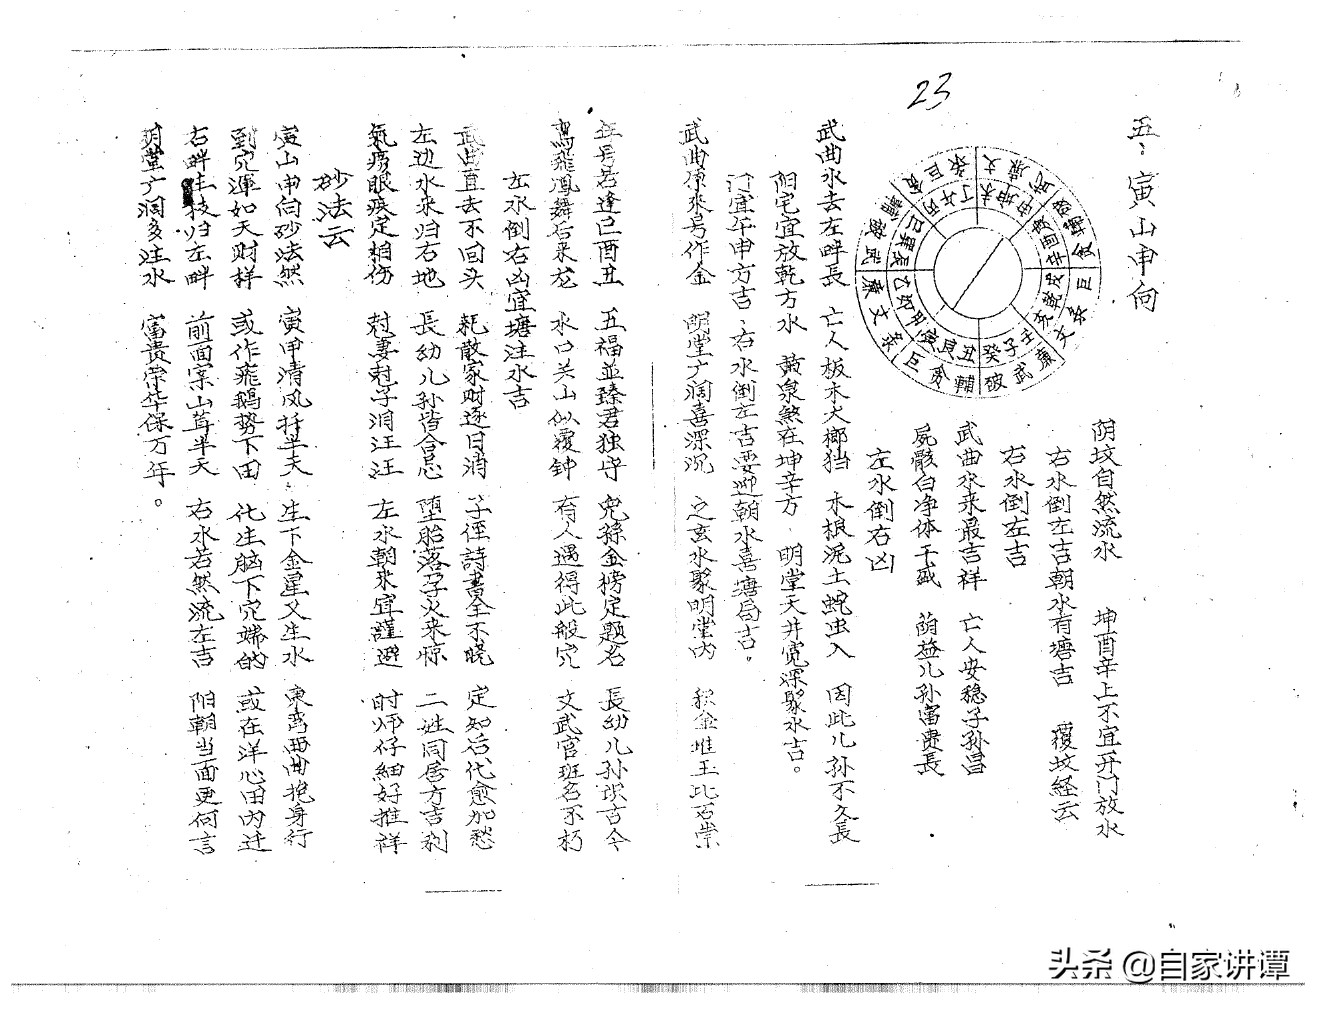 23
五、寅山申向
阴坟自然流水 坤酉辛上不宜开门放水
右水倒左吉朝水有塘吉 覆坟经云
右水倒左吉
武曲水来最吉祥 亡人安稳子孙昌
屍骸白净体干盛 荫益儿孙富贵長
左水倒右凶
武曲水去左畔長 亡人板木大榔挡 木根泥土蛇虫入 因此儿孙不久長
阳宅宜放乾方水 黄泉煞在坤辛方、明堂天井宽深聚水吉。
门宜午申方吉、右水倒左吉要迎朝水喜塘局吉。
武曲原来号作金 明堂广润喜深沉 之玄水聚明堂内 积金堆玉比石崇
年号若逢巳酉丑 五福並臻君独守 兔孫金榜定题名 長幼儿孙琪古今
鸾飛鳳舞后来龙 水口关山似覆钟 有人遇得此般穴 文武官班名不朽
左水倒右凶宜塘注水吉
武曲直去不回头 耗散家财逐日消 子侄詩書全不晓 定知后代愈加愁
左边水来归右地 長幼儿孙皆合忌 堕胎落孕火来惊 二姓同居方吉利
氣痨眼疾定相伤 尅妻尅子泪汪汪 左水朝来宜謹避 时师仔細好推祥
砂法云
寅山申向砂法然 寅甲清风扦半天 生下金星又生水 東弯西曲抱身行
到穴運如天财样 或作飛鹅势下田 化生脑下穴端的 或在洋心田内迁
右畔生枝归左畔 前面案山茸半天 右水若然流左吉 阳朝当面更何言
明堂广润多注水 富贵荣华保万年。
头条 @自家讲谭